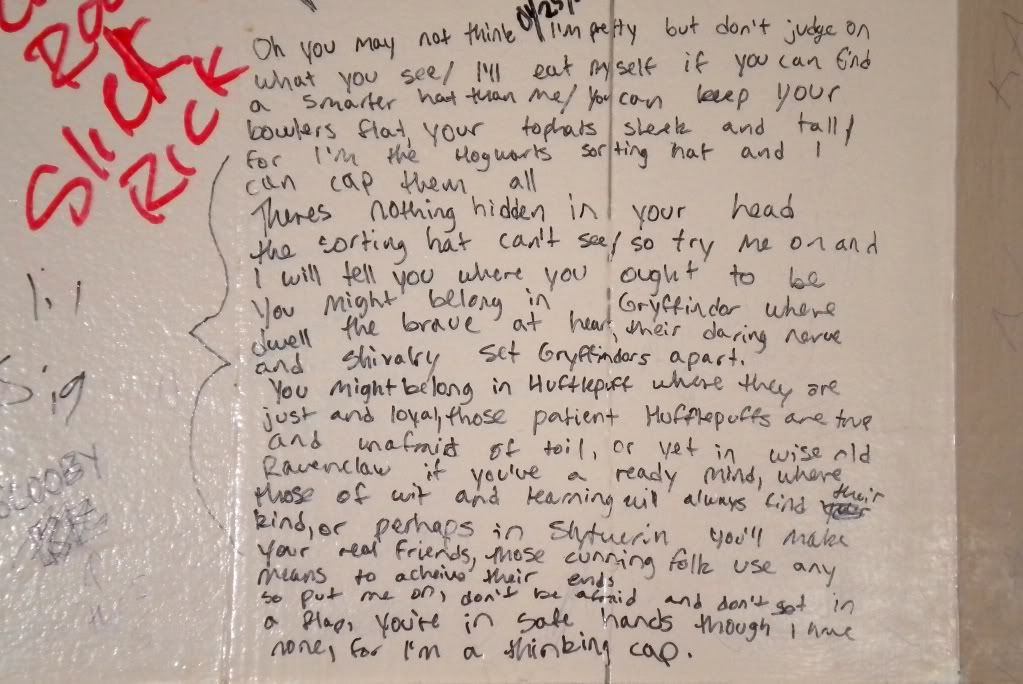 SLICK
RICK
lil
Sig
SCOOBY
Oh you may not think I'm pretty but don't judge on
what you see/ I'll eat myself if you can find
a smarter hat than me/ you can keep your
bowlers flat, your tophats sleek and tall/
for I'm the Hogwarts sorting hat and I
can cap them all
Theres nothing hidden in your head
the sorting hat can't see/ so try me on and
I will tell you where you ought to be
You might belong in Gryffindor where
dwell the brave at heart, their daring nerve
and shivalry set Gryffindors apart.
You might belong in Hufflepuff where they are
just and loyal, those patient Hufflepuffs are true
and unafraid of toil, or yet in wise old
Ravenclaw if you've a ready mind, where
those of wit and learning will always find their
kind, or perhaps in Slytherin you'll make
your real friends, those cunning folk use any
means to acheive their ends
so put me on, don't be afraid and don't get in
a flap, you're in safe hands though I have
none, for I'm a thinking cap.